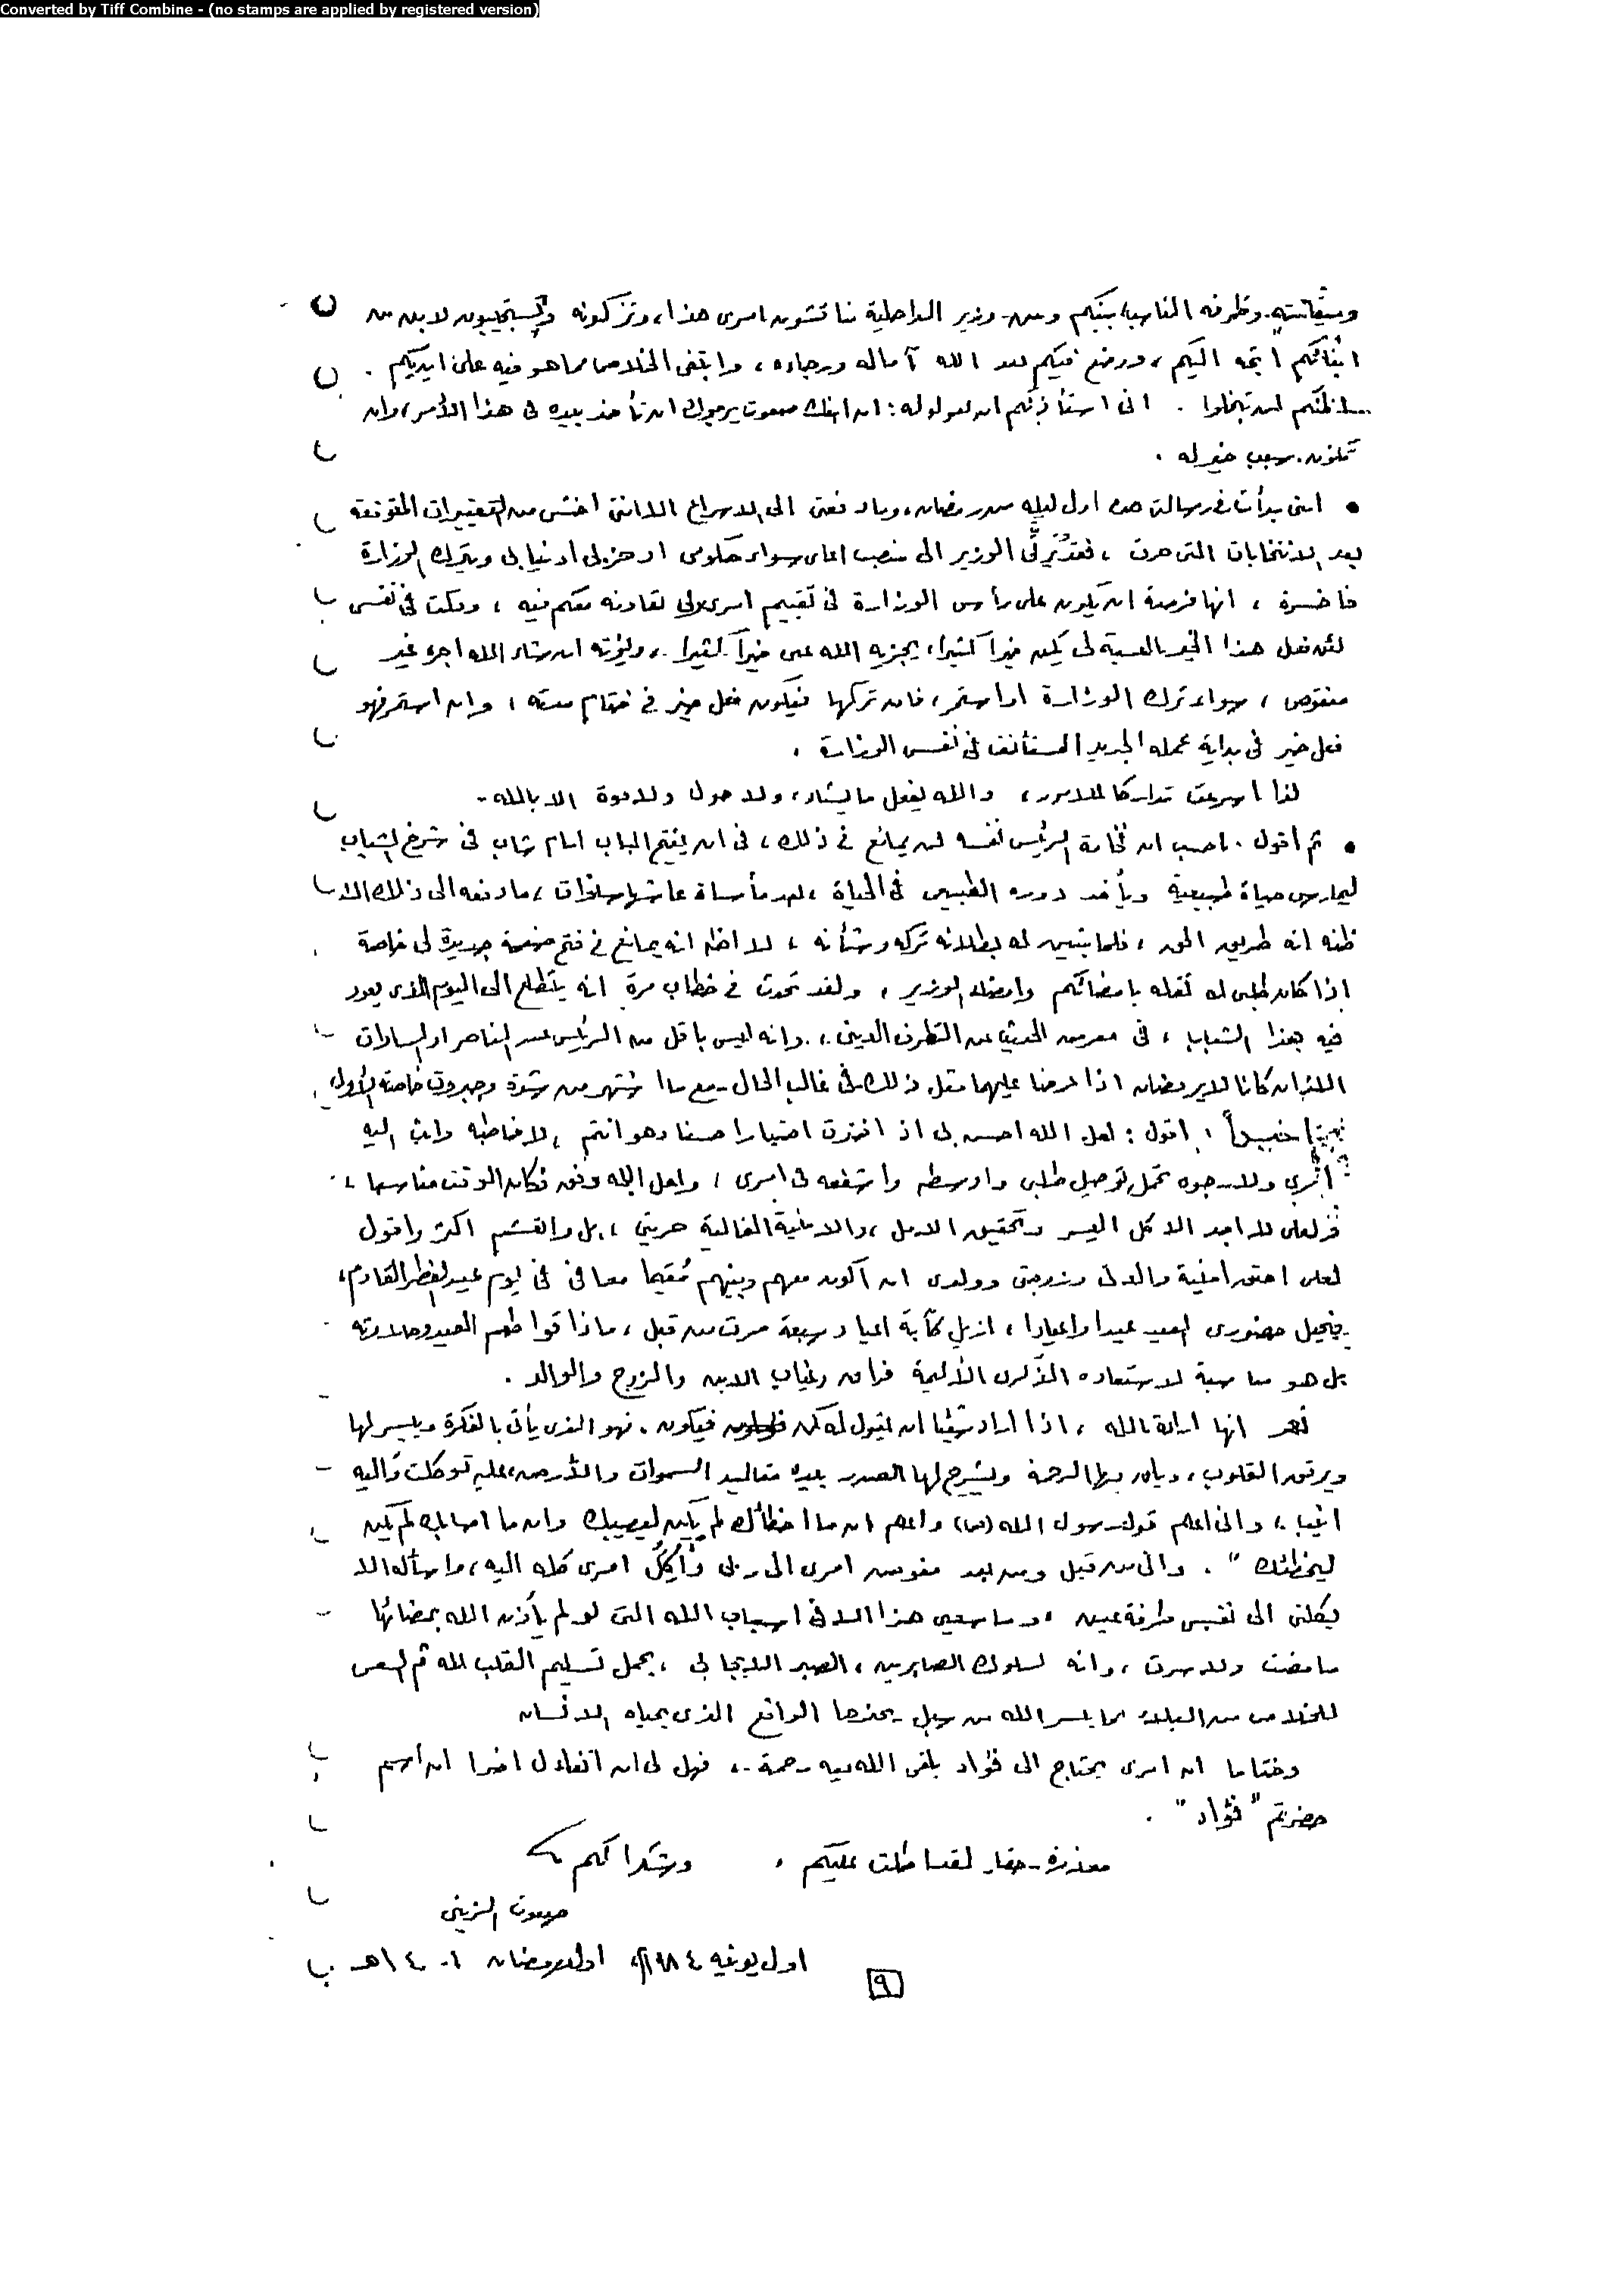 Converted by Tiff Combine - (no stamps are applied by registered version)
وظرفه المناسب بينكم وبين وزير الداخلية تناقشون امرى هذا، وتزكونه وتستجيبون لابن من
ابنائكم اتجه اليكم، ووضع فيكم بعد الله آماله ورجاءه، وابتغى الخلاص مما هو فيه على ايديكم .
لن تبخلوا . انى استأذنكم ان تقولوا له : ان ابنك صفوت يرجوك ان تأخذ بيده فى هذا الأمر، وان
تكون سبب خير له .
• اننى بدأت فى رسالتى هذه اول ليلة من رمضان، وما دفعنى الى الاسراع الا اننى اخشى من التغييرات المتوقعة
بعد الانتخابات التى مرت ، فقد يُرقَّى الوزير الى منصب اعلى سواء حكومى او حزبى او نيابى ويترك الوزارة
شاغرة ، انها فرصة ان يكون على رأس الوزارة فى تقييم امرى ولى تعاونه معكم فيه ، وقلت فى نفسى
لئن فعل هذا الخير بالنسبة لى يكن خيراً كثيرا، يجزيه الله عنى خيراً كثيرا ، وليؤته ان شاء الله اجره غير
منقوص ، سواء ترك الوزارة او استمر، فان تركها فيكون فعل خير فى ختام مدته ، وان استمر فهو
فعل خير فى بداية عمله الجديد المستأنف فى نفس الوزارة .
لذا اسرعت تداركا للامور، والله يفعل ما يشاء، ولا حول ولا قوة الا بالله -
• ثم أقول . احسب ان فخامة الرئيس نفسه لن يمانع فى ذلك ، فى ان يفتح الباب امام شاب فى شرخ الشباب
ليمارس حياة طبيعية ويأخذ دوره الطبيعى فى الحياة ، بعد مأساة عاشها سنوات ، ما دفعه الى ذلك الا
ظنه انه طريق الحق ، فلما تبين له بطلانه تركه وشأنه ، لا اظن انه يمانع فى فتح صفحة جديدة لى خاصة
اذا كان طلبى له نقله بامضائكم وامضاء الوزير ، ولقد تحدث فى خطاب مرة انه يتطلع الى اليوم الذى يعود
فيه هذا الشباب ، فى معرض الحديث عن التطرف الدينى .، وانه ليس باقل من الرئيس عبد الناصر او السادات
اللذان كانا لا يرفضان اذا عرضا عليهما مثل ذلك فى غالب الحال - مع ما اشتهر من شدة وجبروت خاصة الأول،
اقول : لعل الله احسن بى اذ اخترت اختيارا حسنا وهو انتم ، لاخاطبه وابث اليه
ولارجوه تحمل توصيل طلبى واوسطه واستشفعه فى امرى ، ولعل الله وفق فكان الوقت مناسبا ،
فلعلى لا اجد الا كل اليسر وتحقيق الامل ، والامنية الغالية حريتى ، بل واتعشم اكثر واقول
لعلى احقق امنية والدى وزوجتى وولدى ان اكون معهم وبينهم مُقيما معافى فى يوم عيد الفطر القادم،
فيحيل حضورى العيد عيدا واعيادا ، ازيل كآبة اعياد سبعة مرت من قبل ، ما ذاقوا طعم العيد وحلاوته
بل هو مناسبة لاستعاده الذكرى الأليمة فراق وغياب الابن والزوج والوالد .
نعم انها ارادة الله ، اذا اراد شيئا ان يقول له كن فيكون . فهو الذى يأتى بالفكرة وييسر لها
ويرقق القلوب ، ويشرح لها الصدر بيده مقاليد السموات والأرض، عليه توكلت واليه
انيب ، وانى اعلم قول رسول الله (ص) واعلم ان ما اخطأك لم يكن ليصيبك وان ما اصابك لم يكن
ليخطئك " . وانى من قبل ومن بعد مفوض امرى الى ربى وأَكِلُ امرى كله اليه، واسأله الا
يكلنى الى نفسى طرفة عين ، وما سعيى هذا الا فى اسباب الله التى لو لم يأذن الله بمضائها
ما مضت ولا سرت ، وانه لسلوك الصابرين ، الصبر الايجابى ، يحمل تسليم القلب لله ثم السعى
للخلاص من البلاء بما يسر الله من سبل يحددها الواقع الذى يحياه الانسان
وختاما ان امرى يحتاج الى فؤاد يلقى الله فيه رحمة .، فهل لى ان اتفاءل اخيرا ان اسم
حضرتكم " فؤاد " .
معذرة - حقا لقد اطلت عليكم ، وشكرا لكم
صفوت الزينى
اول يونيه ١٩٨٤م، اول رمضان ١٤٠٤هـ
٩